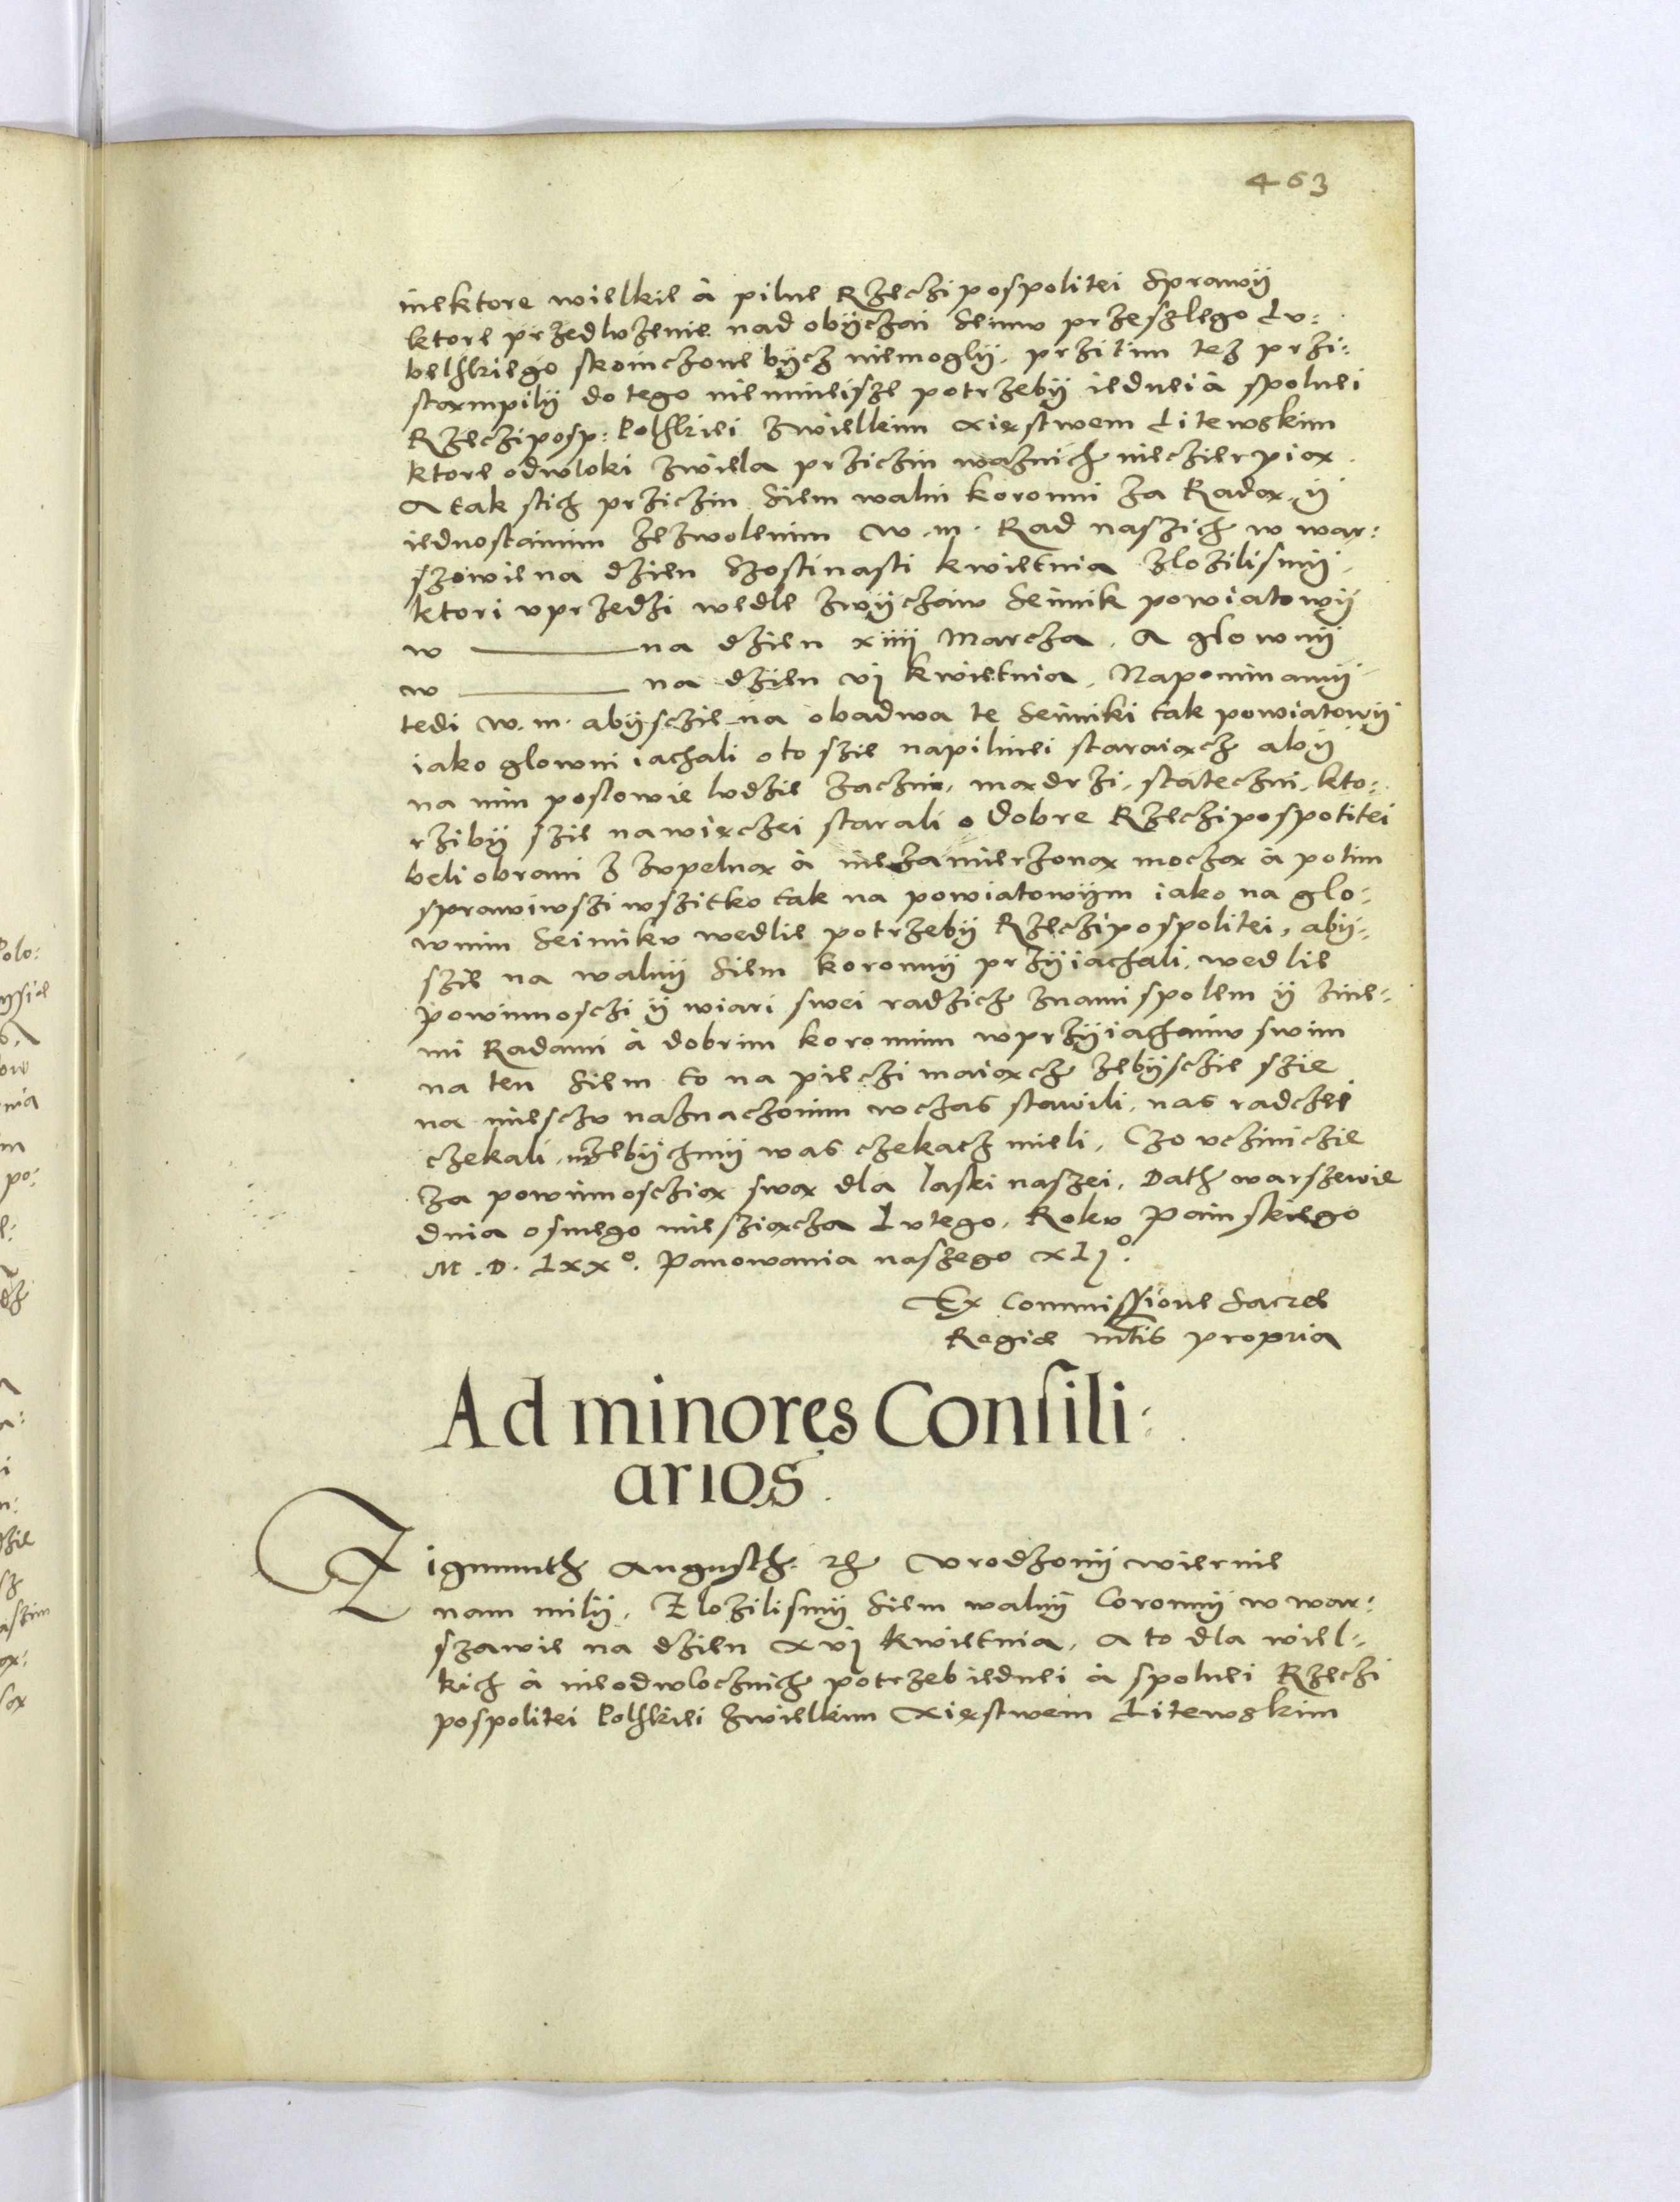 463
niektore wielkie à pilne Rzeczipospolitei Sprawÿ
ktore przedlvżenie nad obÿczai Seimv przeszlego Lv:
belskiego skoinczone bÿcz niemoglÿ, przitim tez przi:
stąmpilÿ do tego niemnieisze potrzebÿ iednei à spolnei
Rzecziposp: Polskiei zwielkim Xięstwem Litewskim
ktore odwloki zwiela prziczin ważnich niecierpią.
A tak stich prziczin Siem walni koronni za Radą ÿ
iednostainim zezwolenim W. m. Rad naszich w war:
szowie na dzien Szostinasti kwietnia zlożilismÿ,
ktori vprzedzi wedle zwÿczaiv Seimik powiatowÿ
w ——— na dzien xiiij Marcza. A glownÿ
w ——— na dzien vj kwietnia. Napominamÿ
tedi W. m. abÿsczie na obadwa te Seimiki tak powiatowÿ
iako glowni iachali o to szie napilniei staraiącz abÿ
na nim poslowie lvdzie zaczni, mądrzi, stateczni, kto:
rzibÿ szie nawięczei starali o dobre Rzeczipospolitei
beli obrani z zvpelną à niezamierzoną moczą à potim
sprawiwszi wszitko tak na powiatowÿm iako na glo:
wnim Seimikv wedlie potrzebÿ Rzeczipospolitei, abÿ:
szie na walnÿ Siem koronnÿ przÿiachali, wedlie
powinnosczi ÿ wiari swei radzicz znami spolem ÿ inne:
mi Radami à dobrim koronnim wprzÿiachaniv swim
na ten Siem to na pieczi maiącz zebÿsczie szie
na miesczv naznaczonim wczas stawili, nas radczei
czekali, niżebÿchmÿ was czekacz mieli. Czo vczinicie
za powinnosczią swą dla laski naszei. Dath w warszewie
dnia osmego miesziącza Lvtego. Rokv Painskiego
M. D. Lxxº. Panowania naszego xljº.
Ex Commissione Sacræ
Regiæ mtis propria
Ad minores Consili:
arios.
Zigmunth Augusth. etc. Vrodzonÿ wiernie
nam milÿ. Zlożilismÿ Siem walnÿ Coronnÿ w war:
szawie na dzien xvj kwietnia. A to dla wiel:
kich à nieodwlocznich potrzeb iednei à spolnei Rzeczi
pospolitei Polskiei zwielkim Xięstwem Litewskim